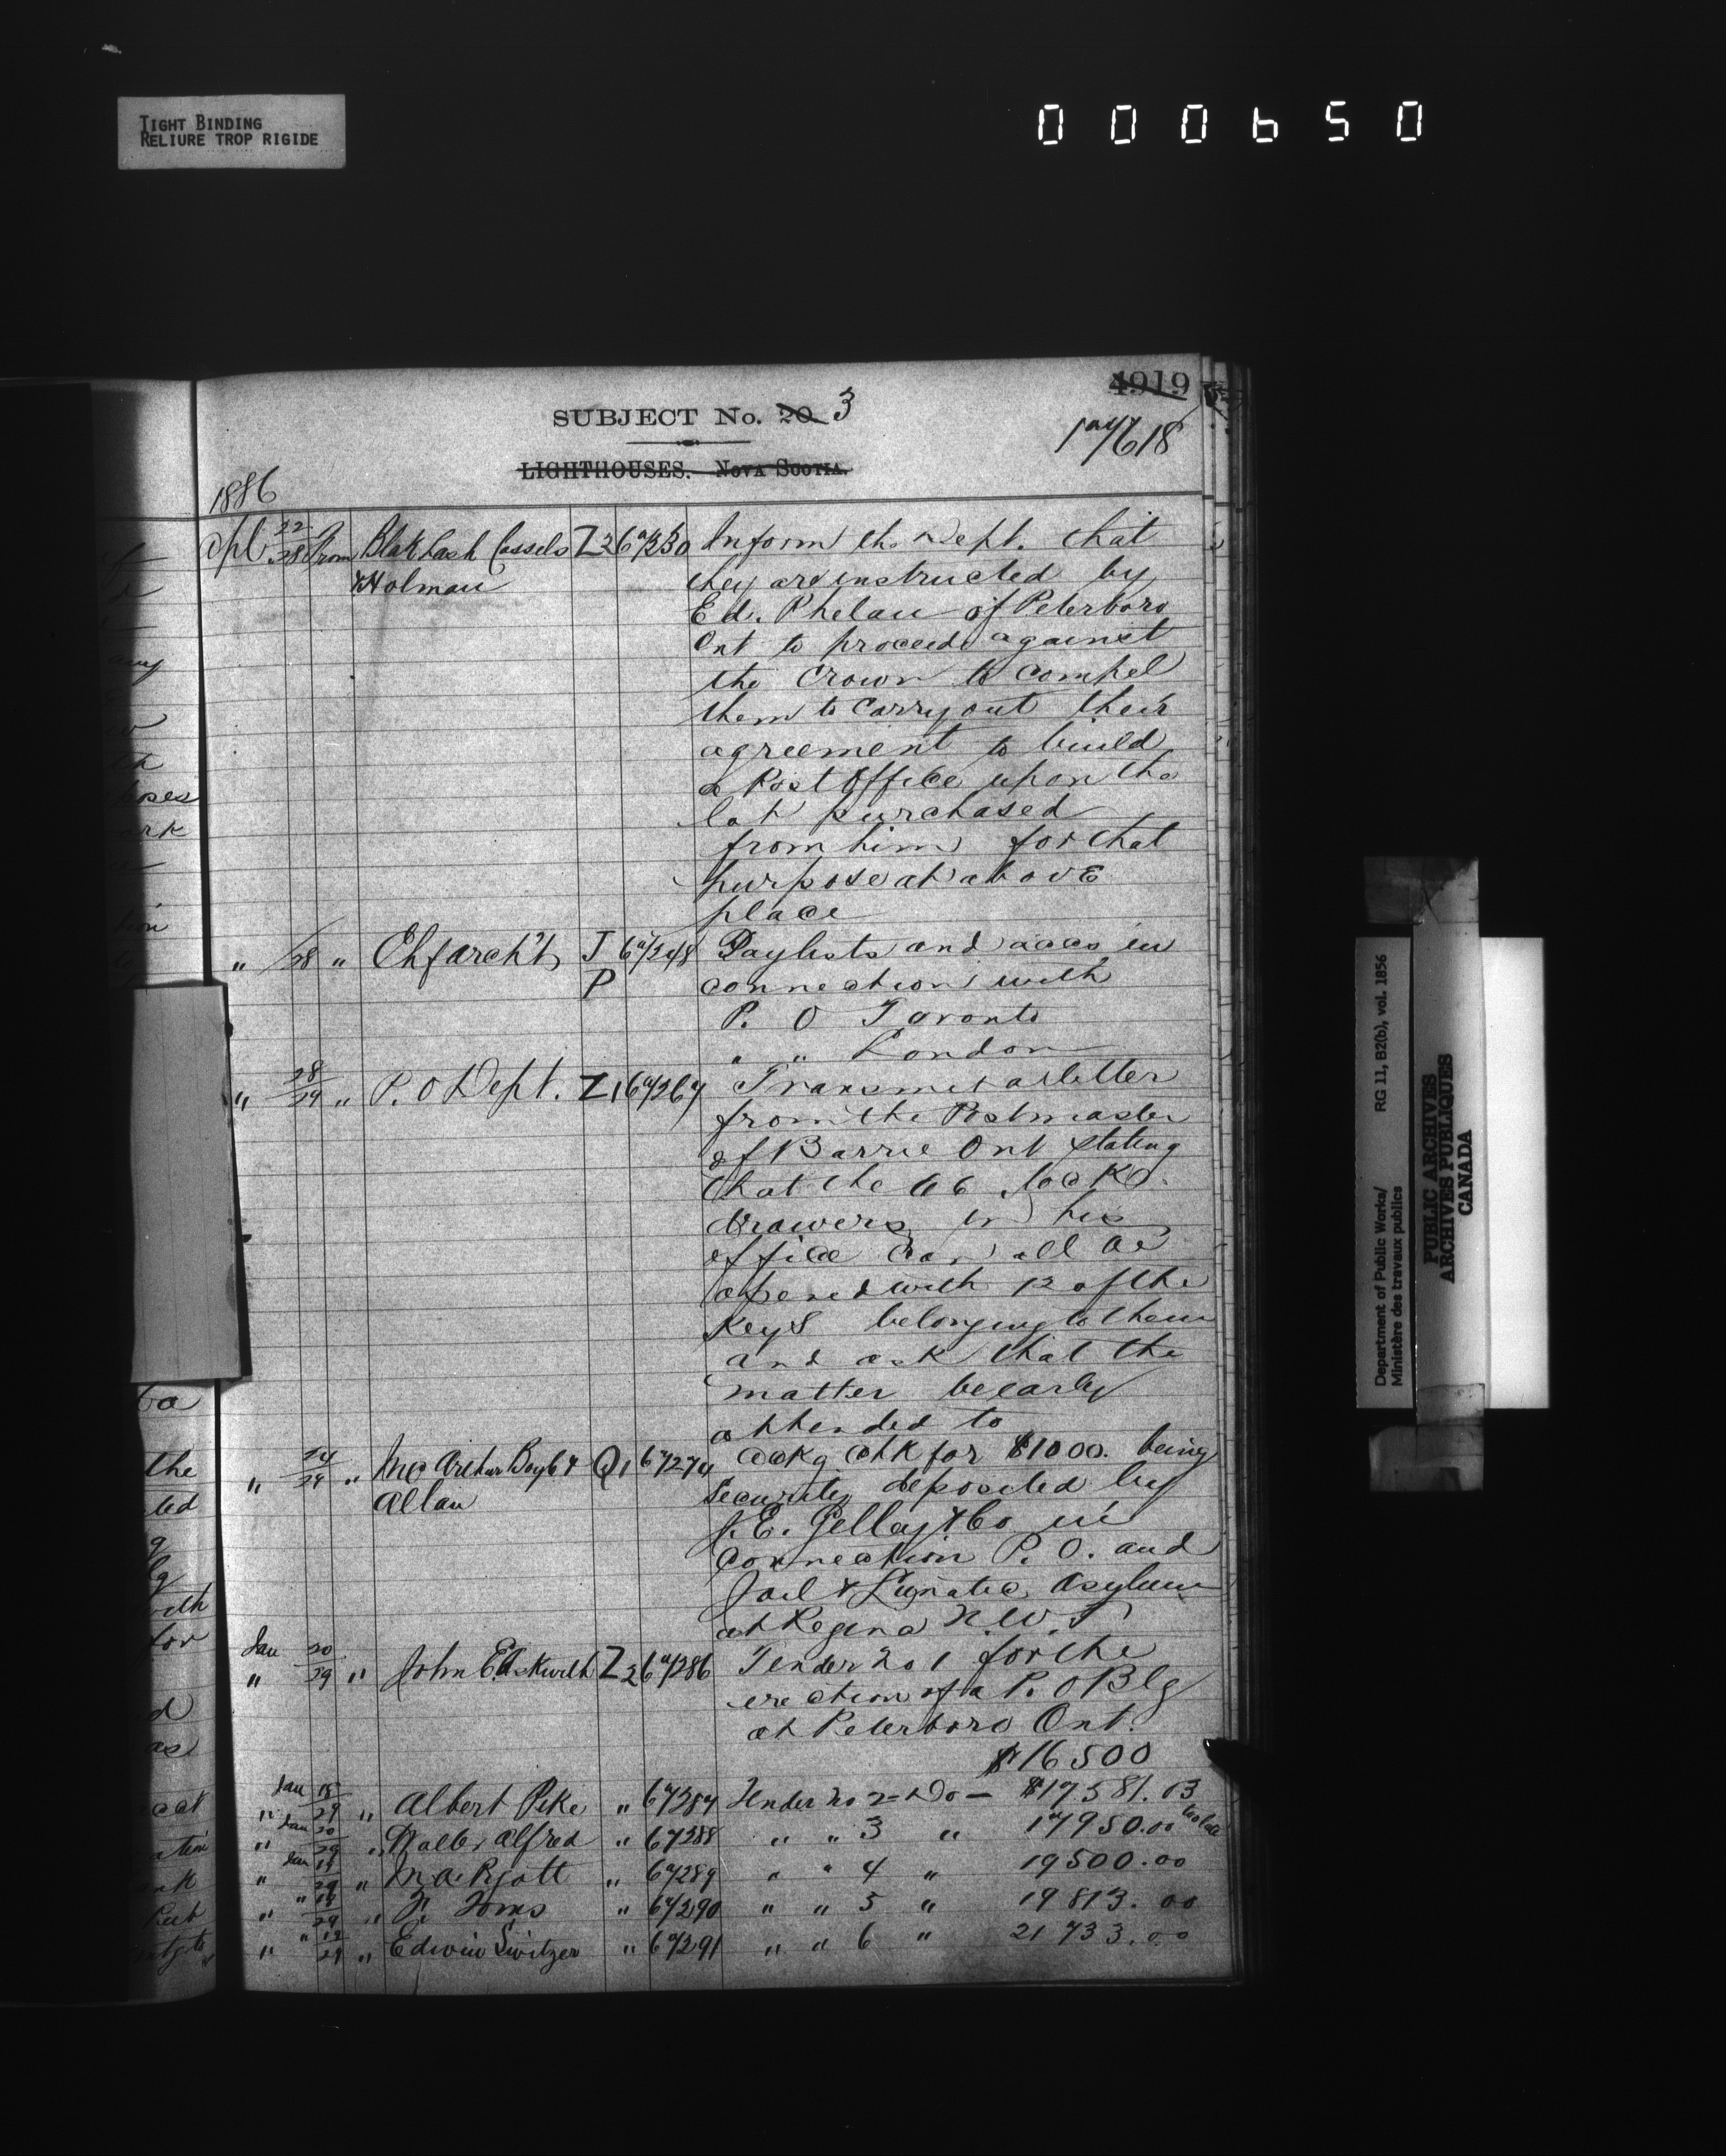 TIGHT BINDING
RELIURE TROP RIGIDE
000650
4919
SUBJECT No. 20 3
LIGHTHOUSES. NOVA SCOTIA.
1886
Apl 22/28 From Blake Lash Cassels Z2 67230 Inform the Dept. that
& Holman they are instructed by
Ed. Phelan of Peterboro
Ont to proceed against
the Crown to compel
them to carry out their
agreement to build
a Post Office upon the
lot purchased
from him for that
purpose at above
place
" /28 " Chf arch't J 67248 Paylists and accs in
P connection with
P. O Toronto
" " London
" 28/29 " P. O Dept. Z1 67267 Transmit a letter
from the Postmaster
of Barrie Ont stating
that the 66 lock
drawers in his
office can all be
opened with 12 of the
keys belonging to them
and ask that the
matter be early
attended to
" 24/29 " McArthur Boyle & Q1 67274 ackg chk for $1000. being
Allan security deposited by
J. E. & Co in
connection P. O. and
Jail & Lunatic Asylum
at Regina N.W.T
Jan 20
" 29 " John E. Askwith Z2 67286 Tender No 1 for the
erection of a P. O Blg
at Peterboro Ont.
$16500
Jan 18
" 29 " Albert Peke " 67287 Tender No 2 - Do - $17581.03
Jan 20
" 29 " Alfred " 67288 " " 3 " 17950.00 too late
Jan 19
" 29 " " 67289 " " 4 " 19500.00
" 19
" 29 " " 67290 " " 5 " 19813.00
" 19
" 29 " Edwin Switzer " 67291 " " 6 " 21733.00
Department of Public Works/ RG 11, B2(b), vol. 1856
Ministère des travaux publics
PUBLIC ARCHIVES
ARCHIVES PUBLIQUES
CANADA